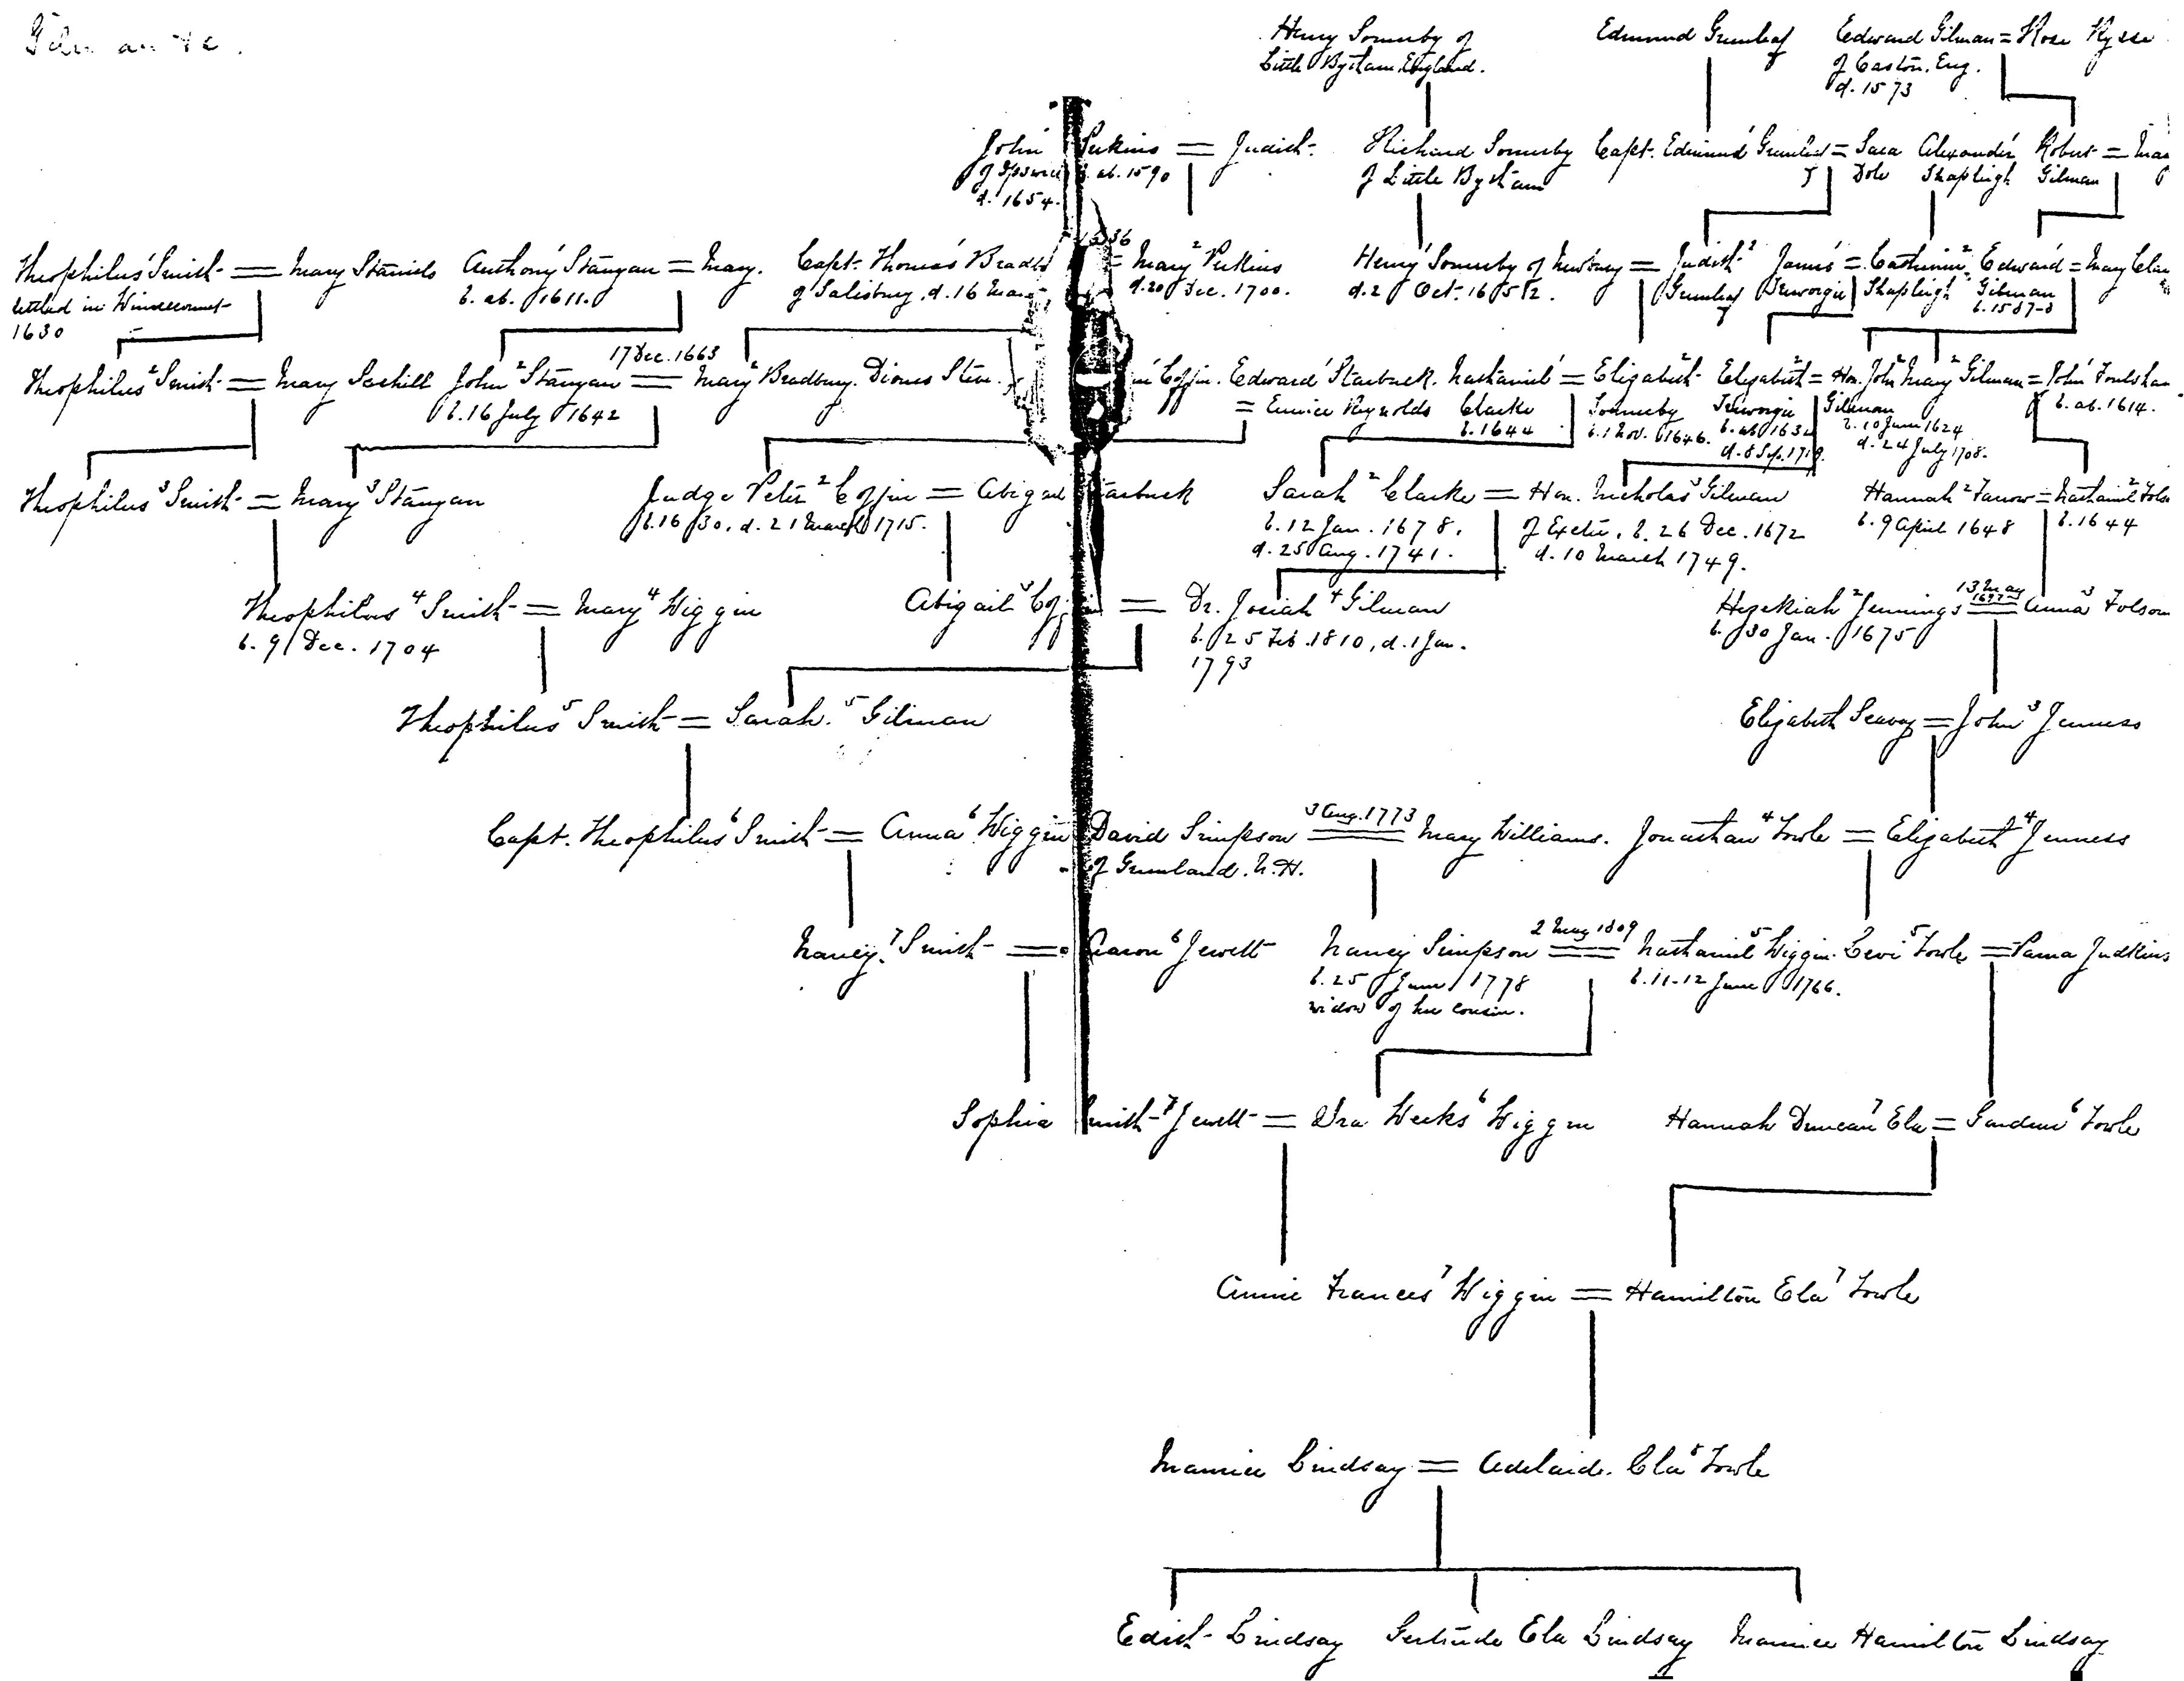 Gilman &c.
Henry Somerby of
Little Bytham, England.
Edmund Greenleaf
Edward Gilman = Rose Rysse
of Caston, Eng.
d. 1573
John Perkins = Judith.
of Ipswich b. ab. 1590
d. 1654.
Richard Somerby
of Little Bytham
Capt. Edmund¹ Greenleaf = Sara
Dole
Alexander¹
Shapleigh
Robert =
Gilman
Theophilus¹ Smith = Mary Staniels
settled in
1630
Anthony¹ Stanyan = Mary.
b. ab. 1611.
Capt. Thomas¹
of Salisbury, d. 16
= Mary² Perkins
d. 20 Dec. 1700.
Henry¹ Somerby of Newbury = Judith²
d. 2 Oct. 1652.
Greenleaf
James¹ = Catherine²
Treworgie Shapleigh
Edward¹ = Mary
Gilman
b. 1587-8
Theophilus² Smith = Mary
17 Dec. 1663
John² Stanyan = Mary² Bradbury.
b. 16 July 1642
Dionis
Coffin.
Edward¹ Starbuck.
= Eunice Reynolds
Nathaniel¹ = Elizabeth²
Clarke Somerby
b. 1644 b. 1 Nov. 1646.
Elizabeth² = Hon. John²
Treworgie Gilman
b. ab. 163 b. 10 June 1624
d. 8 Sep. 1719. d. 24 July 1708.
Mary² Gilman = John¹
b. ab. 1614.
Theophilus³ Smith = Mary³ Stanyan
Judge Peter² Coffin = Abigail Starbuck
b. 1630, d. 21 March 1715.
Sarah² Clarke = Hon. Nicholas³ Gilman
b. 12 Jan. 1678. of Exeter, b. 26 Dec. 1672
d. 25 Aug. 1741. d. 10 March 1749.
Hannah² Farrow = Nathaniel²
b. 9 April 1648 b. 1644
Theophilus⁴ Smith = Mary⁴ Wiggin
b. 9 Dec. 1704
Abigail³ Coffin = Dr. Josiah⁴ Gilman
b. 25 Feb. 1810, d. 1 Jan.
1793
13 May
1697
Hezekiah² Jennings = Anna³ Folsom
b. 30 Jan. 1675
Theophilus⁵ Smith = Sarah.⁵ Gilman
Elizabeth Seavey = John³ Jenness
Capt. Theophilus⁶ Smith = Anna⁶ Wiggin
3 Aug. 1773
David Simpson = Mary Williams.
of Greenland. N.H.
Jonathan⁴ Towle = Elizabeth⁴ Jenness
Nancy⁷ Smith = Aaron⁶ Jewett
2 May 1809
Nancy Simpson = Nathaniel⁵ Wiggin.
b. 25 June 1778 b. 11-12 June 1766.
widow of his cousin.
Levi⁵ Towle = Pama Judkins
Sophia Smith⁷ Jewett = Ira Weeks⁶ Wiggin
Hannah Duncan⁷ Ela = Gardner⁶ Towle
Annie Frances⁷ Wiggin = Hamilton Ela⁷ Towle
Maurice Lindsay = Adelaide Ela⁸ Towle
Edith Lindsay Gertrude Ela Lindsay Maurice Hamilton Lindsay